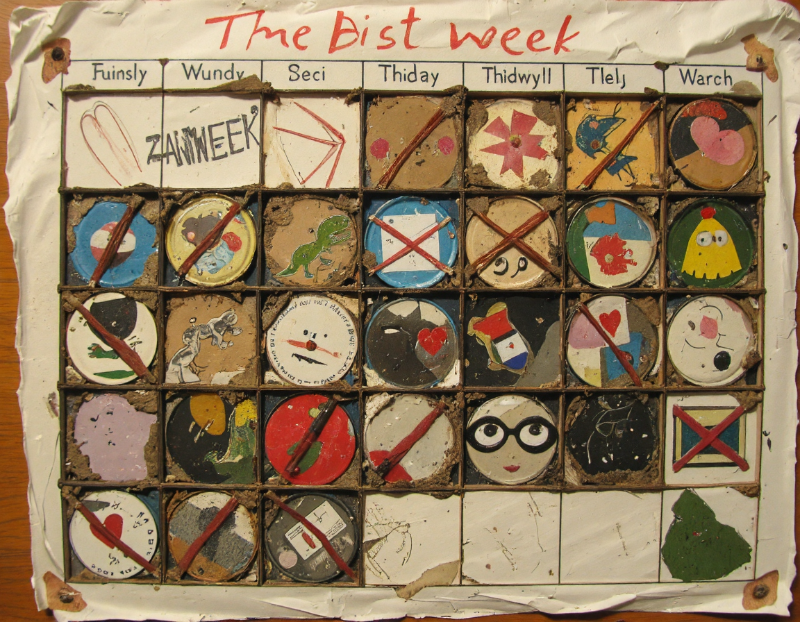 The Bist week
Fuinsly Wundy Seci Thiday Thidwyll Tlelj Warch
ZANTWEEK